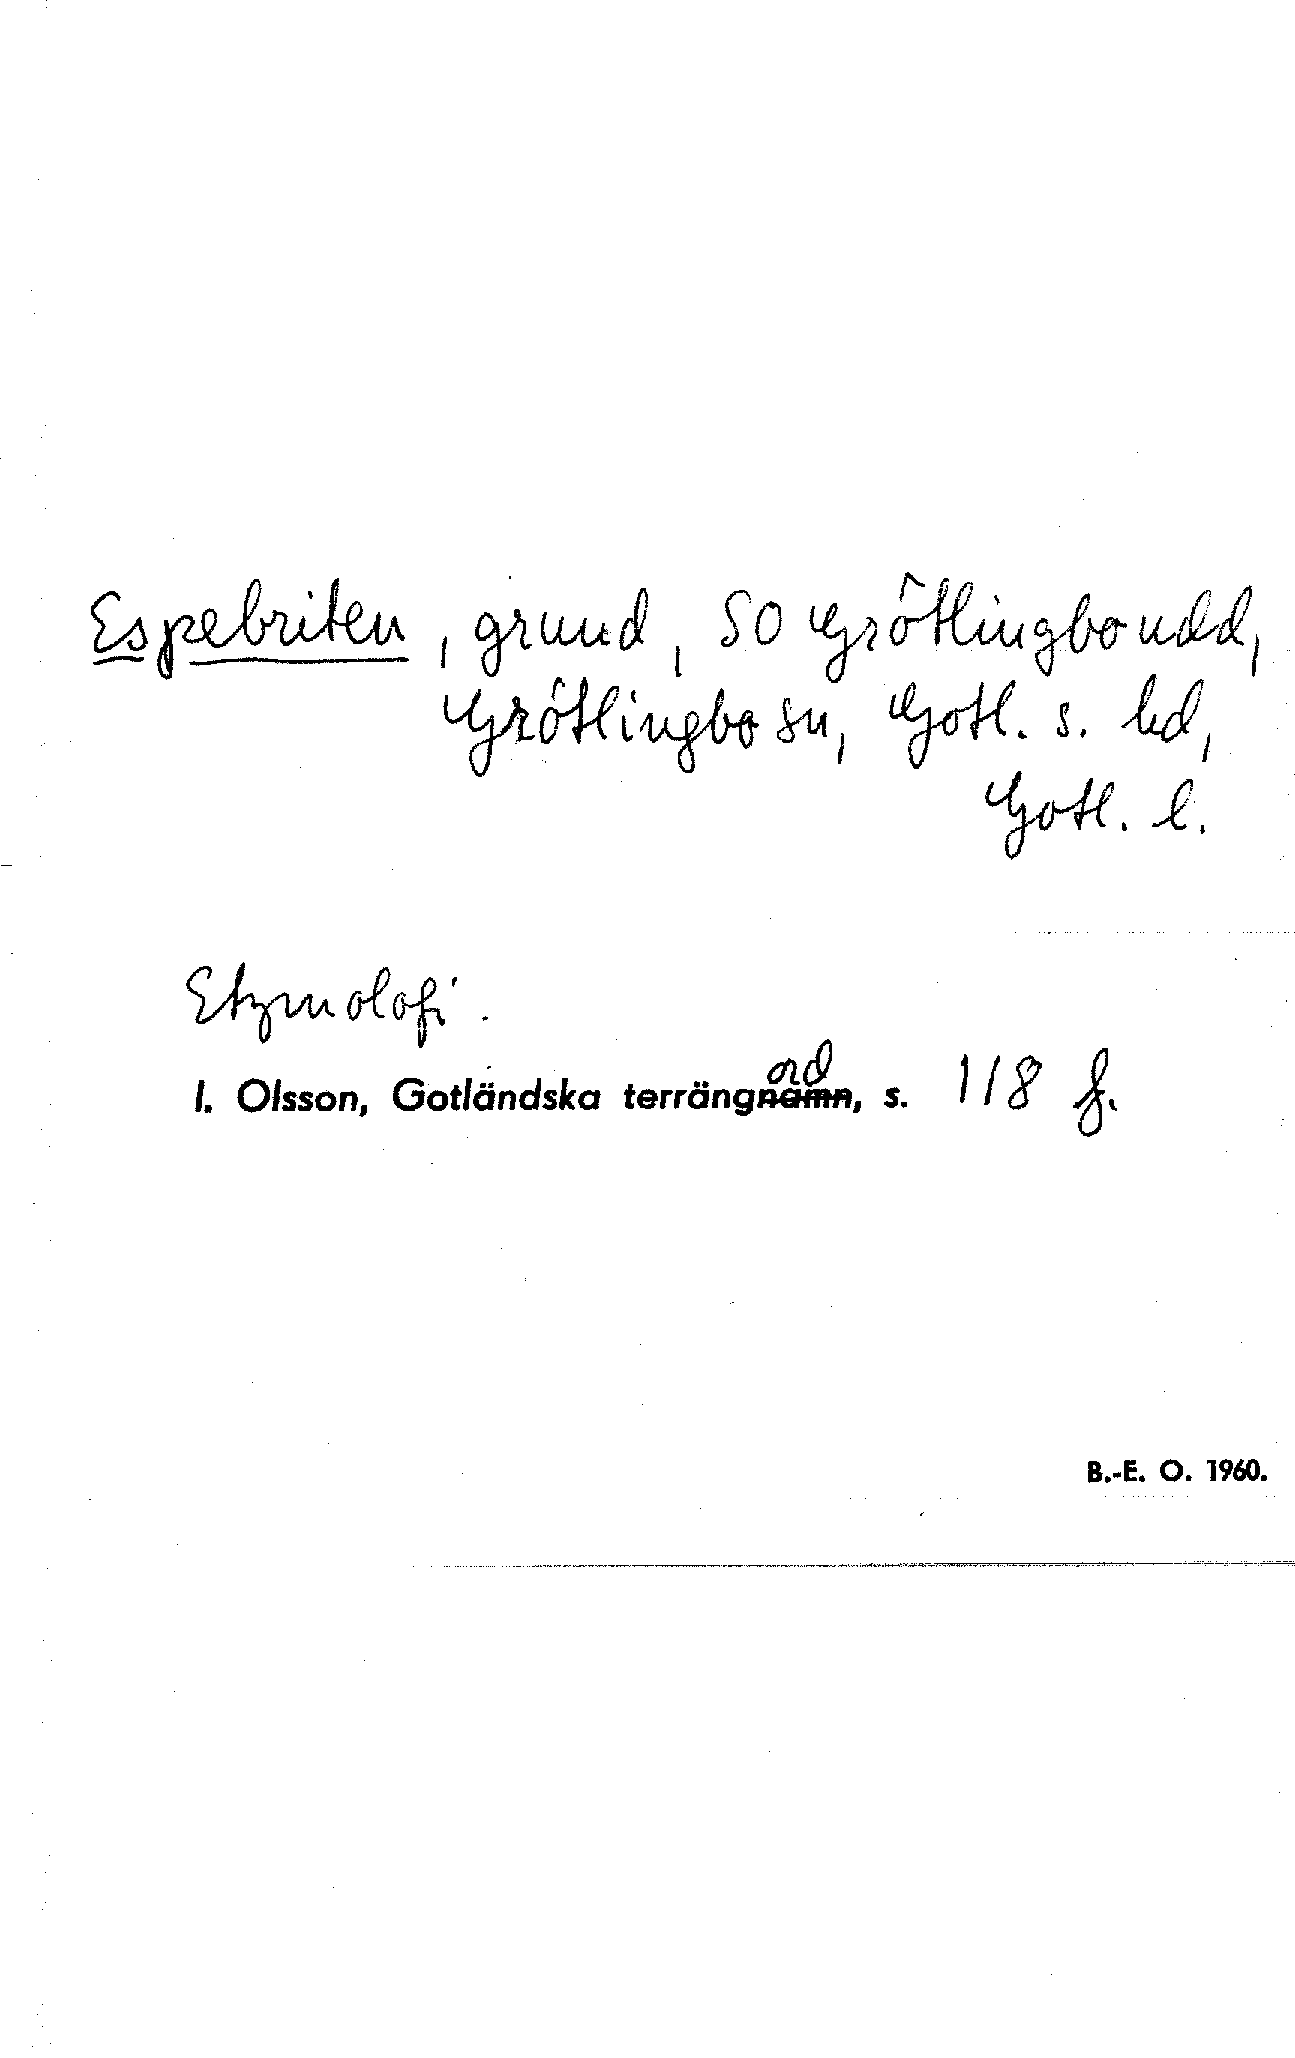 Espebriten, grund, SO Grötlingboudd,
Grötlingbo sn, Gotl. s. hd,
Gotl. l.
Etymologi.
ord
I. Olsson, Gotländska terrängnamn, s. 118 f.
B.-E. O. 1960.